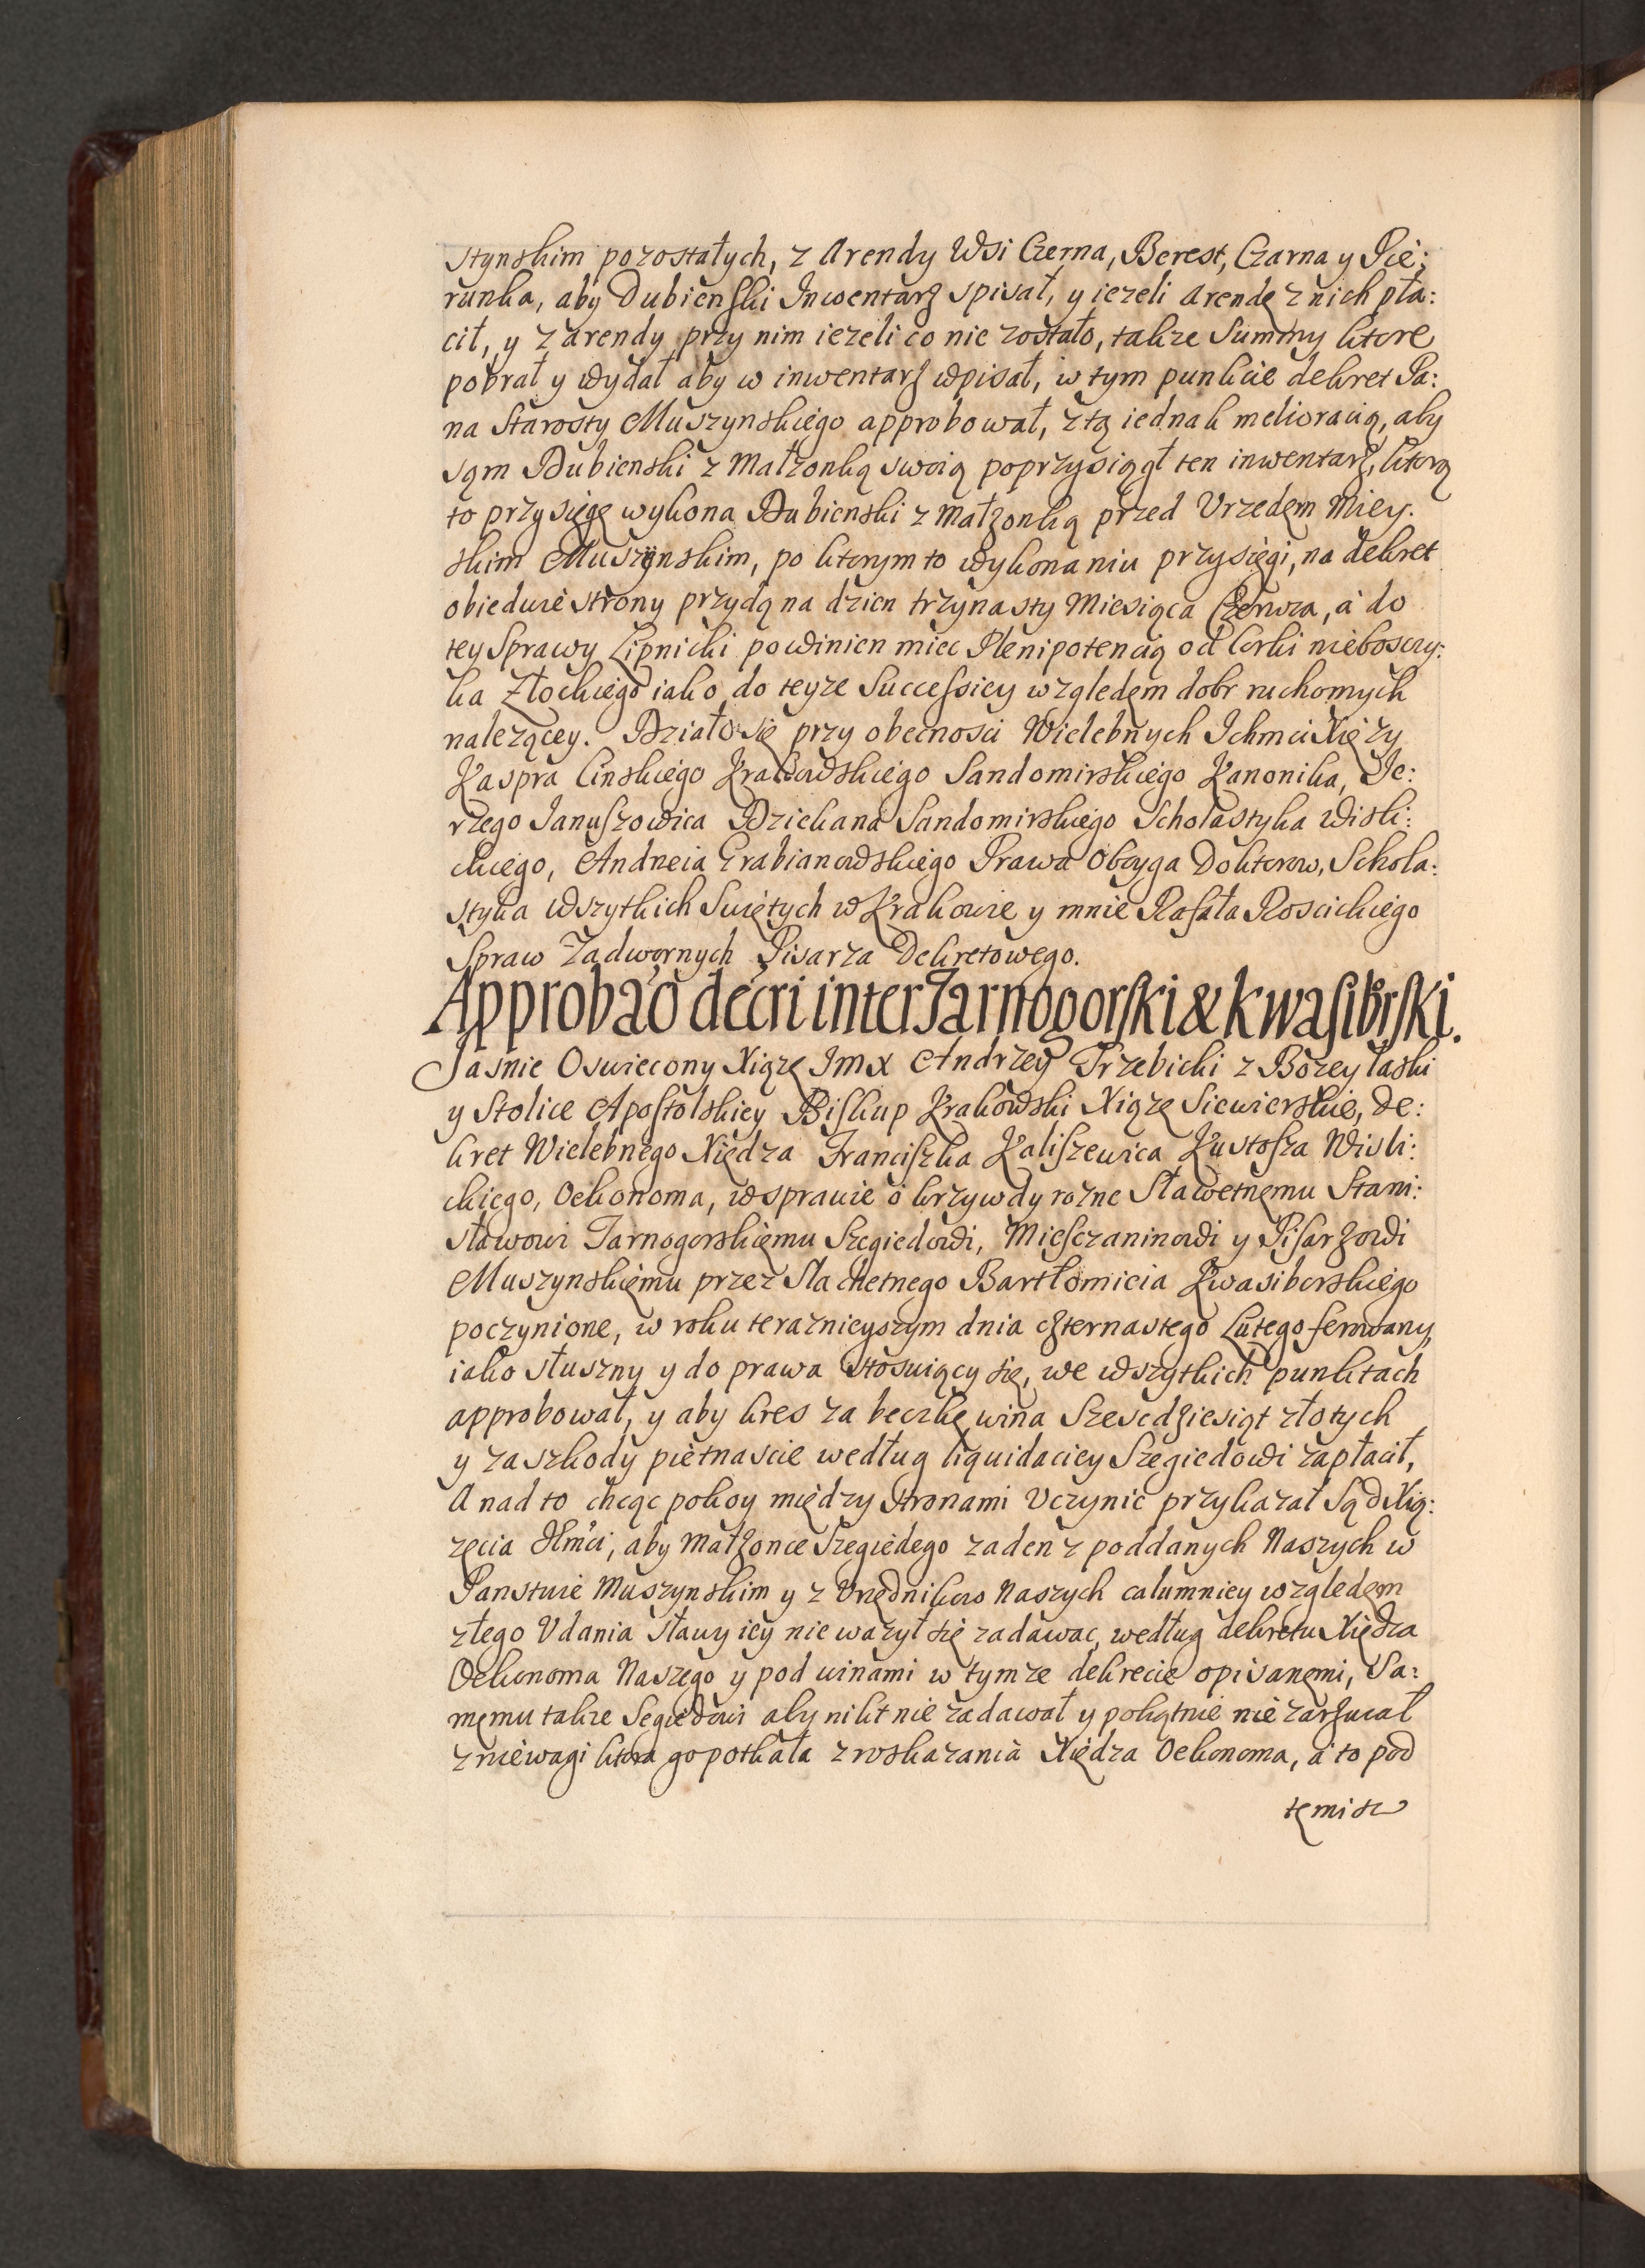 stynskim pozostałych, z Arendy Wsi Czerna, Berest, Czarna y Pie:
runka, aby Dubienski Inwentarz spisał, y iezeli Arendę z nich pła:
cił, y z arendy przy nim iezeli co nie zostało, takze Summy ktore
pobrał y wydał aby w inwentarz wpisał, w tym punkcie dekret Pa:
na Starosty Muszynskiego approbował, z tą iednak melioracią, aby
sąm Dubienski z Małzonką swoią poprzysiągł ten inwentarz, ktorą
to przysięgę wykona Dubienski z Małzonką przed Vrzedęm Miey.
skim Muszynskim, po ktorym to wykonaniu przysięgi, na dekret
obiedwie strony przydą na dzien trzynasty Miesiąca Czerwca, a do
tey Sprawy Lipnicki powinien miec Plenipotencią od Corki nieboszczy:
ka Złockiego iako do teyze Successiey względęm dobr ruchomych
nalezącey. Działo się przy obecnosci Wielebnych Ichmci Xięzy
Kaspra Cinskiego Krakowskiego Sandomirskiego Kanonika, Je:
rzego Januszowica Dziekana Sandomirskiego Scholastyka Wisli:
ckiego, Andrzeia Grabianowskiego Prawa Oboyga Doktorow, Schola:
styka Wszytkich Swiętych w Krakowie y mnie Rafała Roscickiego
Spraw Zadwornych Pisarza Dekretowego.
Approbāo decri inter Tarnogorski & Kwasibrski.
Jasnie Oswiecony Xiąze Jmx Andrzey Trzebicki z Bozey łaski
y Stolice Apostolskiey Biskup Krakowski Xiąze Siewierskie, De:
kret Wielebnego Xiędza Franciszka Kaliszewica Kustosza Wisli:
ckiego, Oekonoma, w sprawie o krzywdy rozne Sławetnęmu Stani:
sławowi Tarnogorskięmu Szegiedowi, Miesczaninowi y Pisarzowi
Muszynskięmu przez Slachetnego Bartłomieia Kwasiborskiego
poczynione, w roku teraznieyszym dnia czternastego Lutego ferowany,
iako słuszny y do prawa stosuiący się, we wszytkich punktach
approbował, y aby kres za beczkę wina Szescdziesiąt złotych
y za szkody pietnascie według liquidaciey Szegiedowi zapłacił,
A nad to chcąc pokoy między stronami Vczynic przykazał Sąd Xią:
zęcia Jmci, aby Małzonce Szegiedego zaden z poddanych Naszych w
Panstwie Muszynskim y z Vrzędnikow Naszych calumniey względęm
złego Vdania sławy iey nie wazył się zadawac, według dekretu Xiędza
Oekonoma Naszego y pod winami w tymze dekrecie opisanęmi, Sa:
męmu takze Segiedowi aby nikt nie zadawał y pokątnie nie zarzucał
zniewagi ktora go potkała z roskazania Xiędza Oekonoma, a to pod
tęmisz